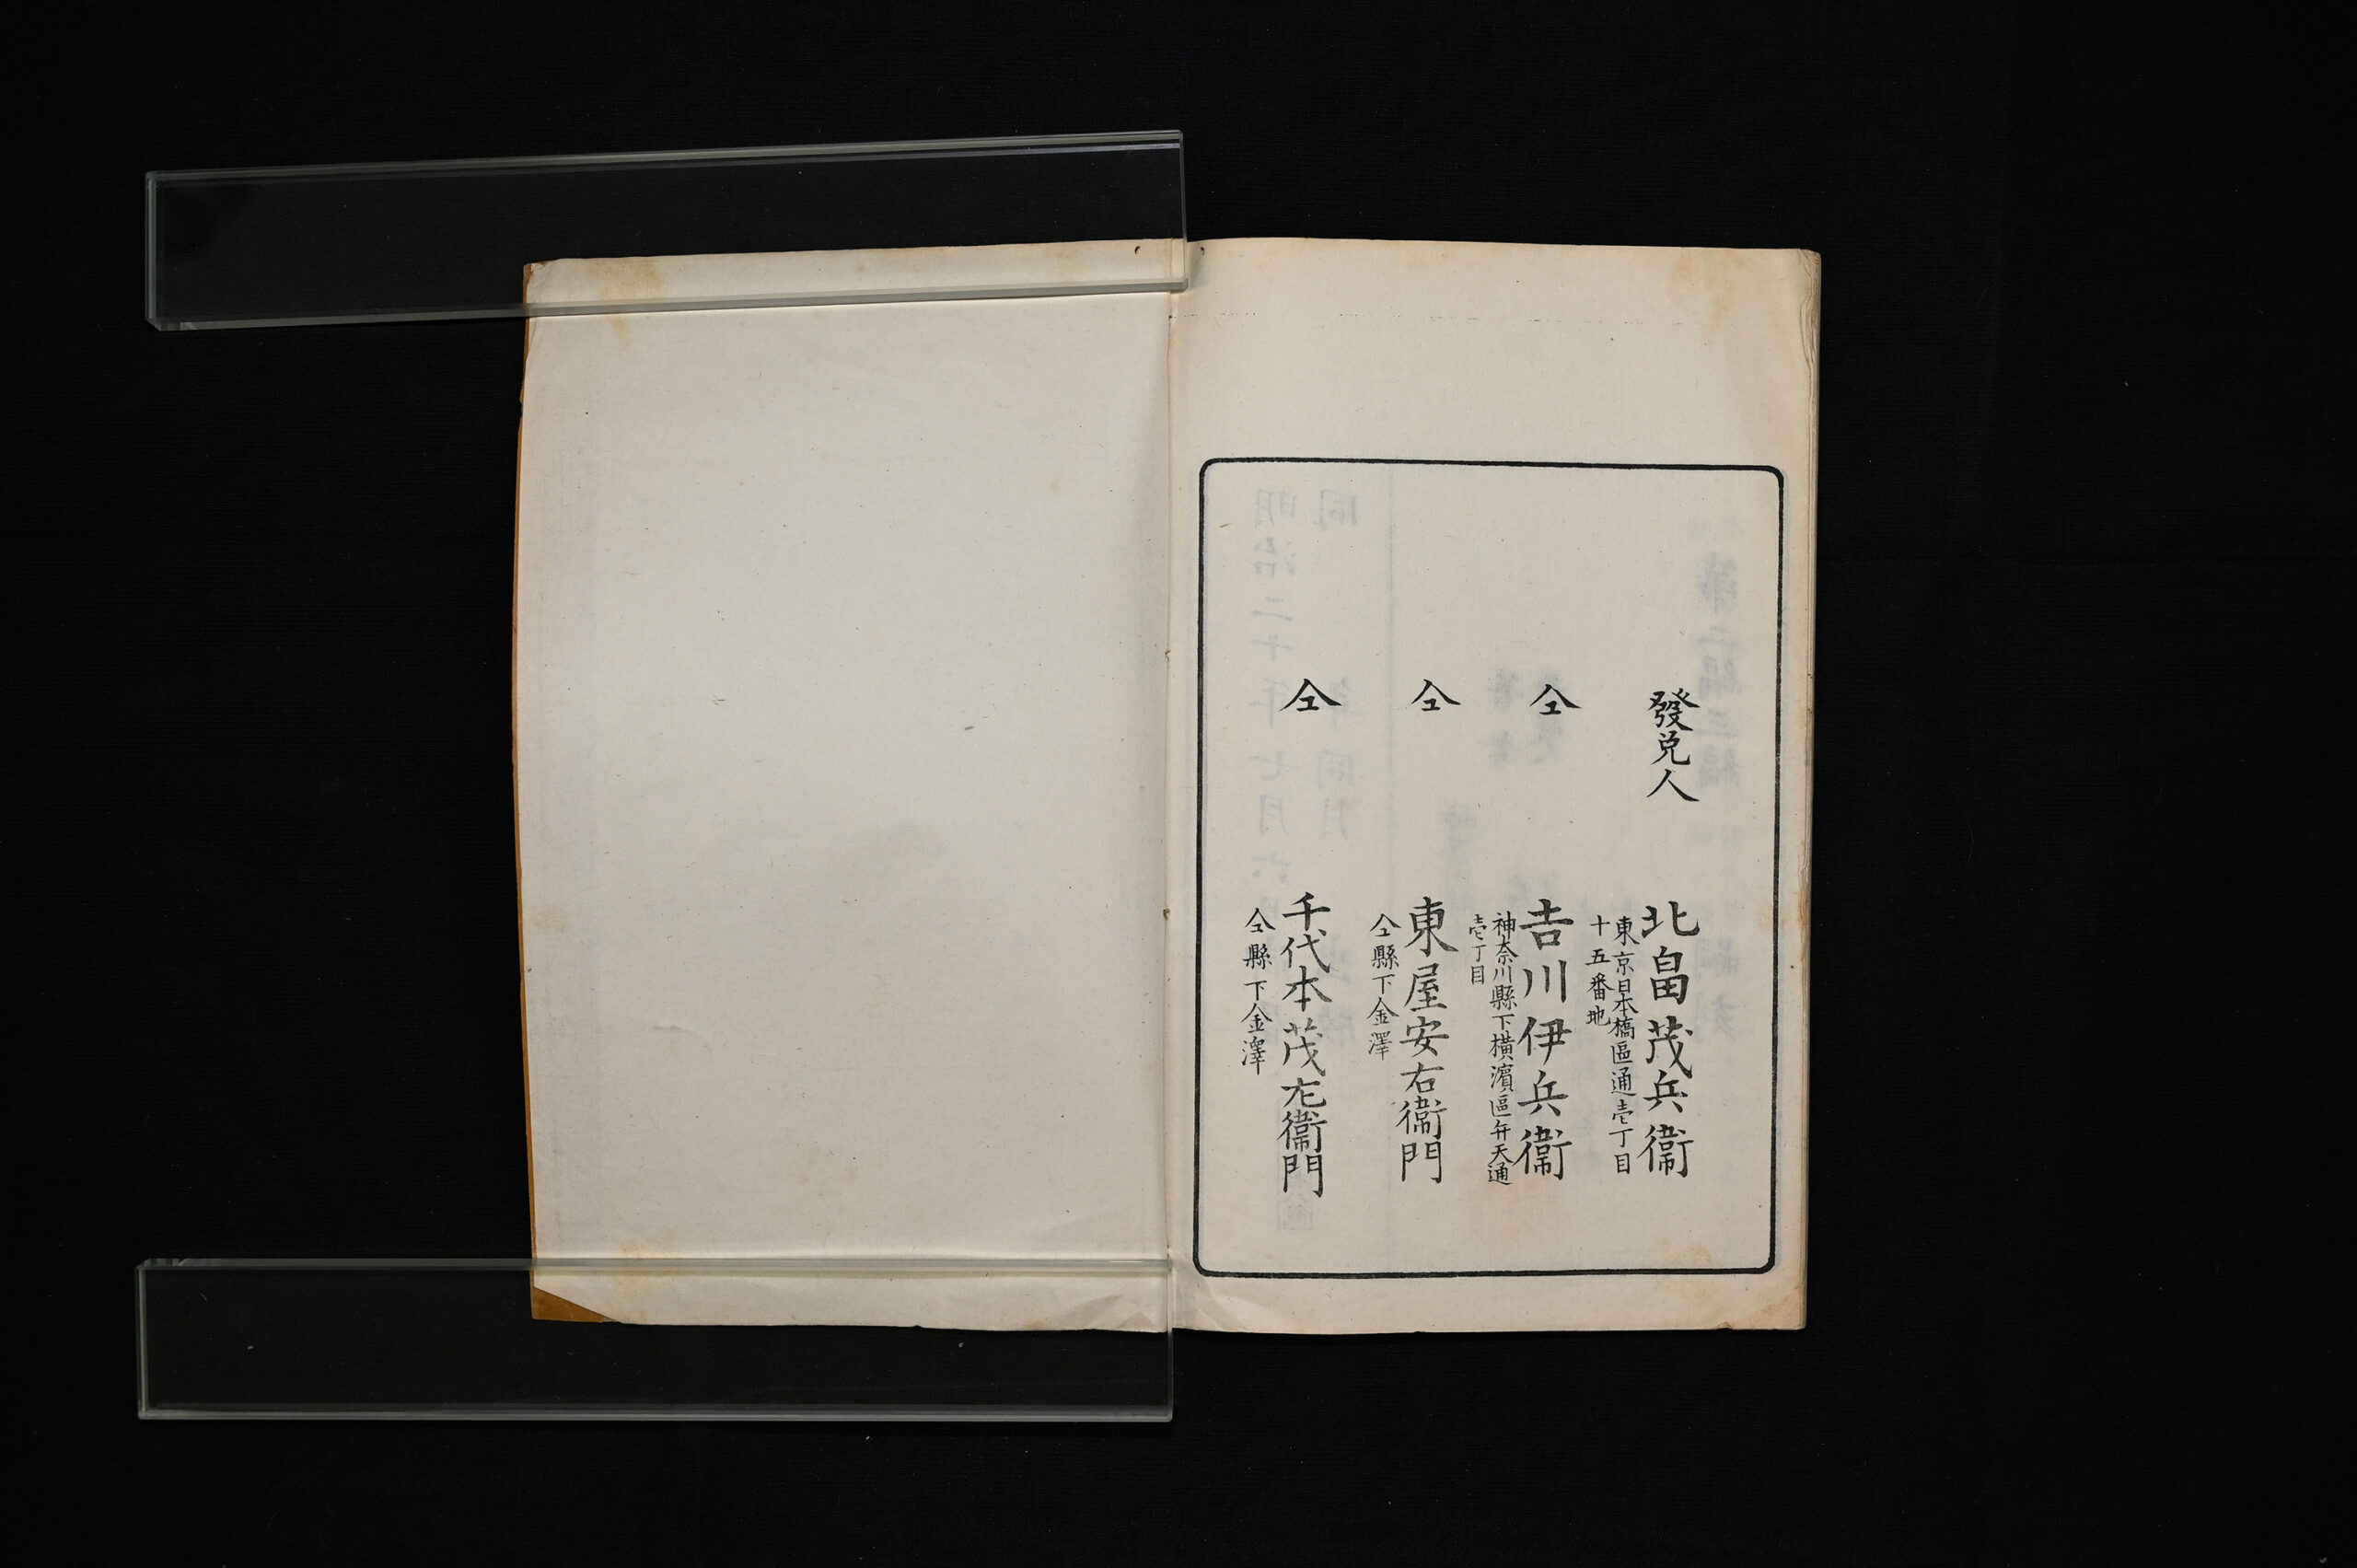 發兌人
北畠茂兵衞
東京日本橋區通壱丁目
十五番地
仝
吉川伊兵衞
神奈川縣下横濱區弁天通
壱丁目
仝
東屋安右衞門
仝縣下金澤
仝
千代本茂左衞門
仝縣下金澤